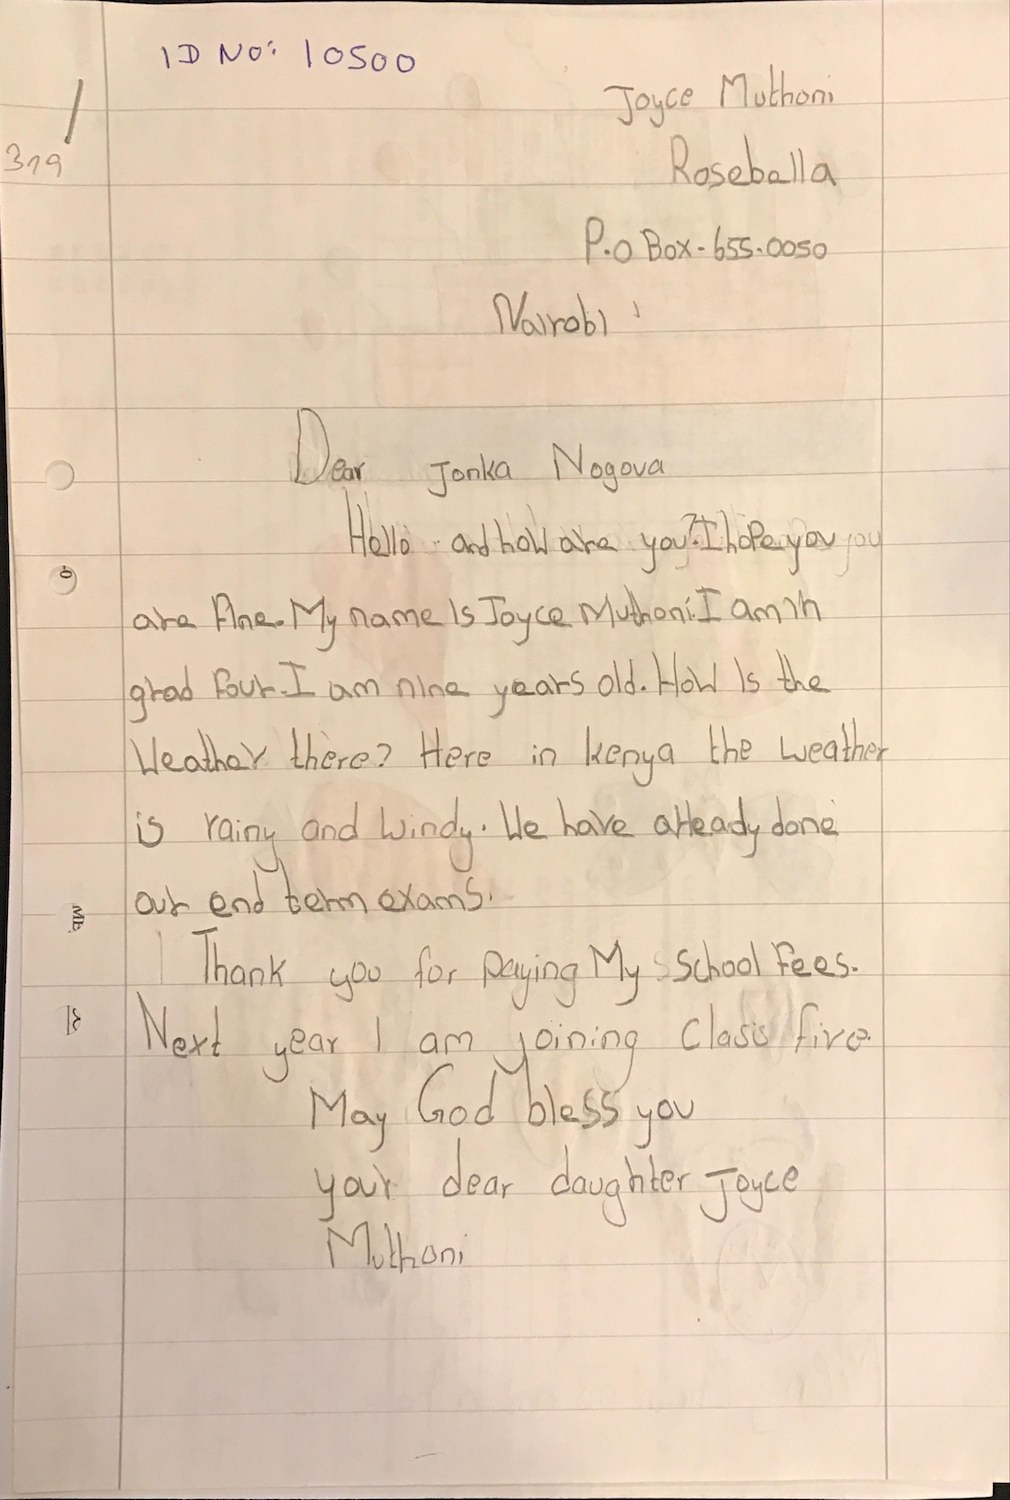 ID No: 10500
319
Joyce Muthoni
Roseballa
P.o Box-655.0050
Nairobi
Dear Jonka Nogova
Hello and how are you? I hope you you
are fine. My name is Joyce Muthoni. I am in
grad four. I am nine years old. How is the
Weather there? Here in kenya the weather
is rainy and windy. We have already done
our end term exams.
Thank you for paying My School Fees.
Next year I am joining Class five.
May God bless you
your dear daughter Joyce
Muthoni